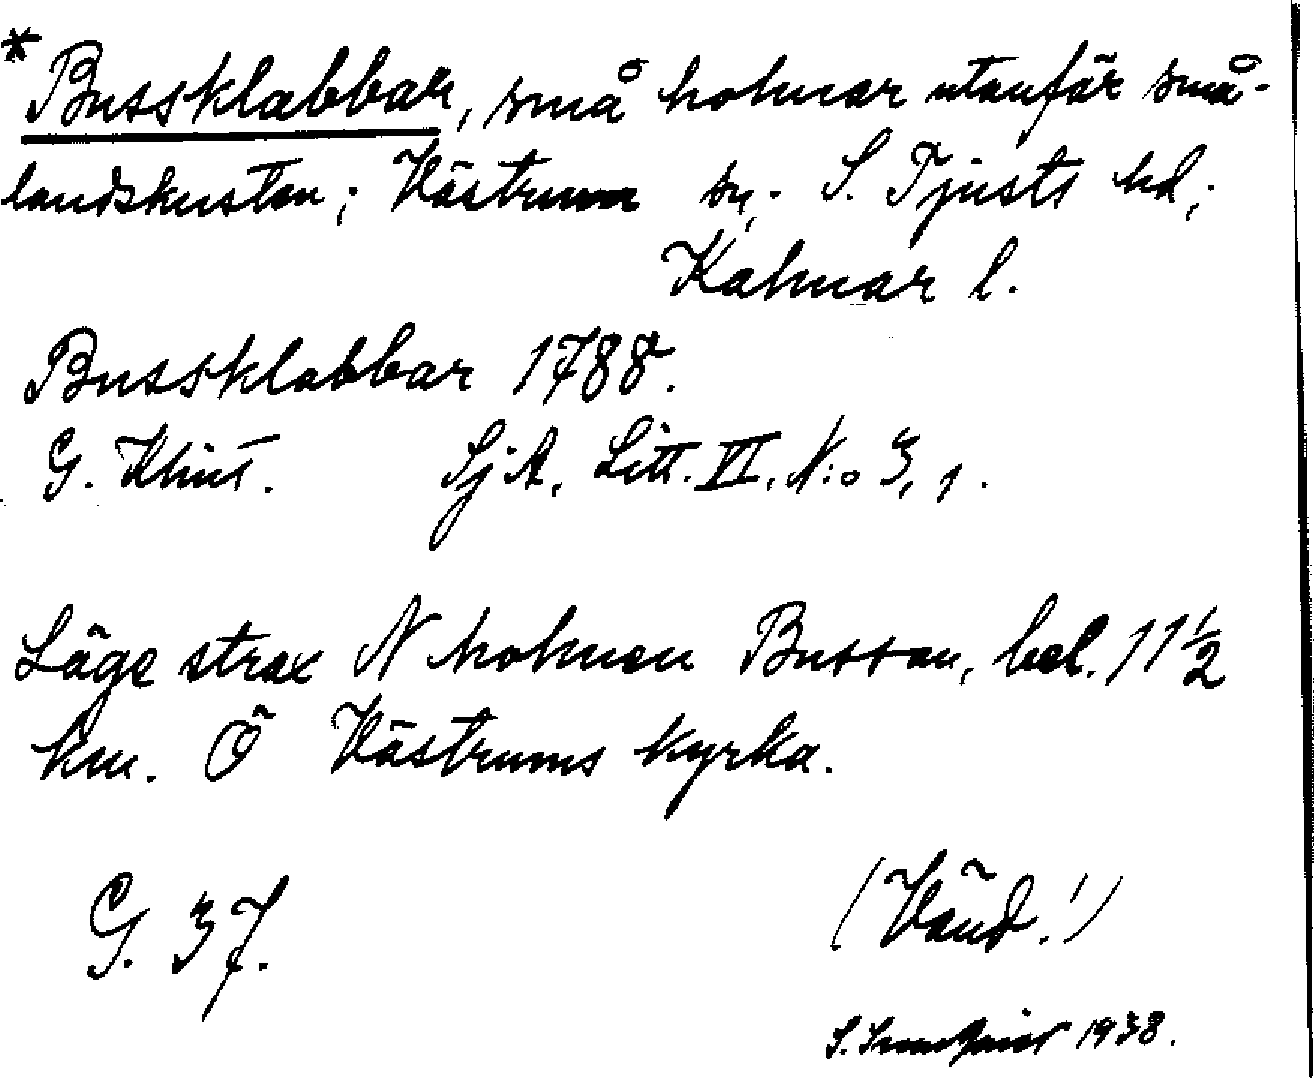 * Bussklabbar, små holmar utanför små-
landskusten; Västrum sn; S. Tjusts hd;
Kalmar l.
Bussklabbar 1788.
G. Klint. SjA, Litt. VI. N:o 3, 1.
Läge strax N holmen Bussan, bel. 11 1/2
km. Ö Västrums kyrka.
G. 37. (Vänd!)
S. 1938.